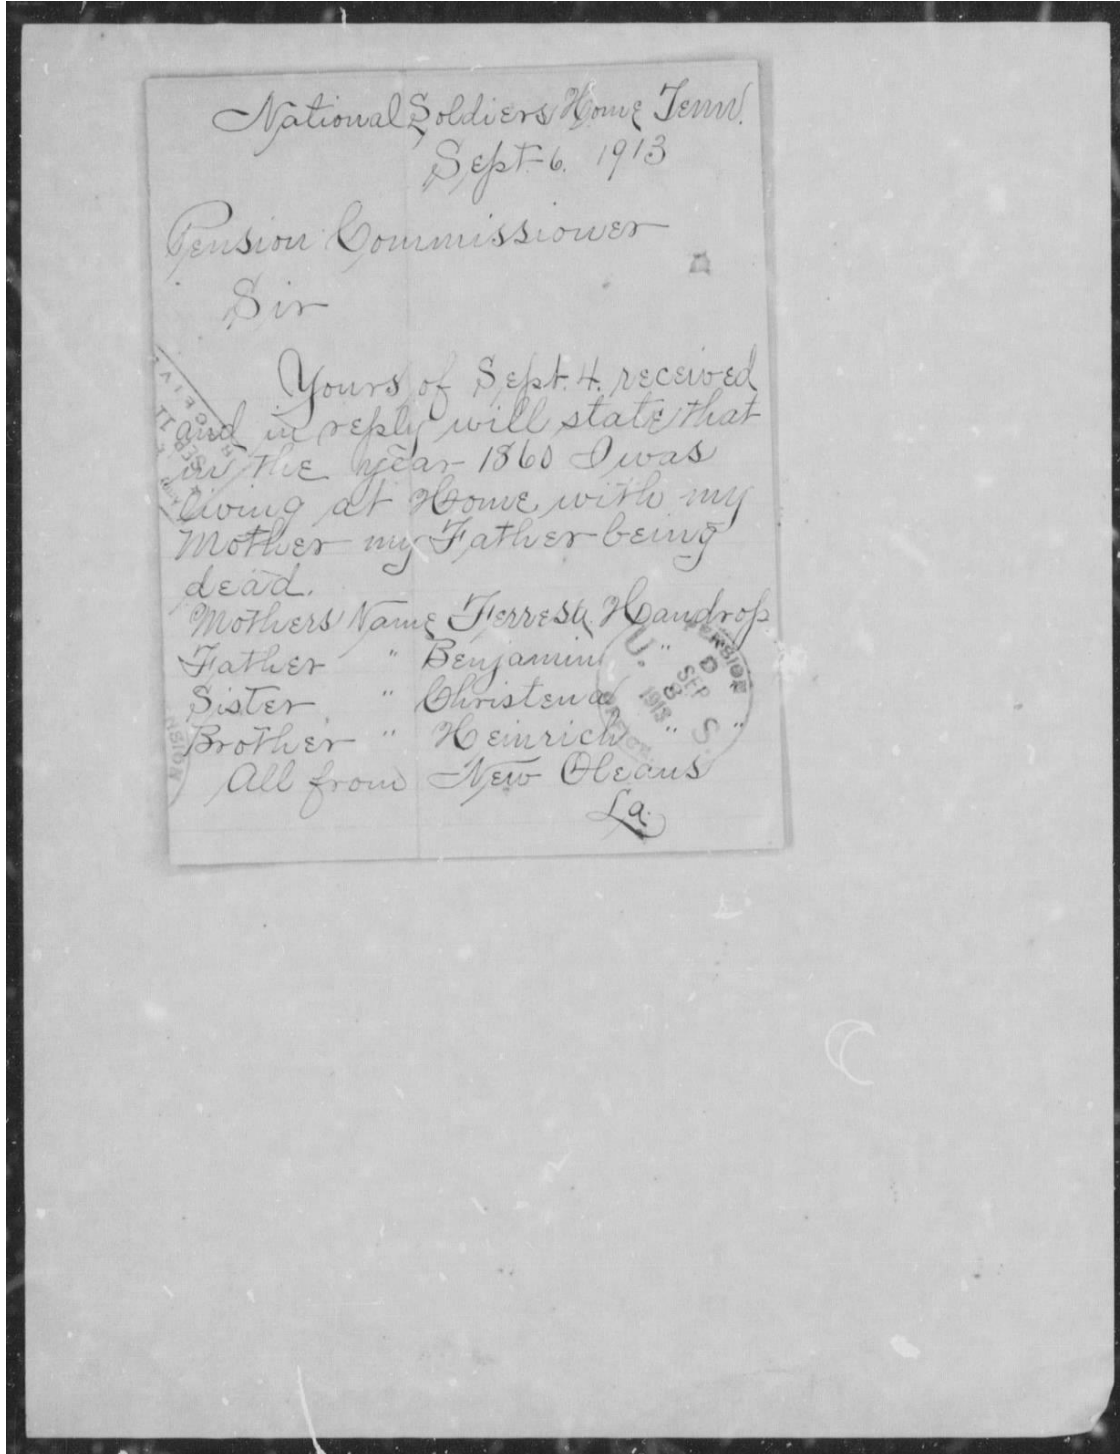 National Soldiers Home Tenn.
Sept. 6. 1913
Pension Commissioner
Sir
Yours of Sept. 4. received
and in reply will state that
in the year 1860 I was
living at Home with my
Mother my Father being
dead.
Mothers Name Terresa Handrop
Father " Benjamin "
Sister " Christena
Brother " Heinrich " "
All from New Oleans
La.
U. S.
PENSION
SEP 8 1913
SEP 11